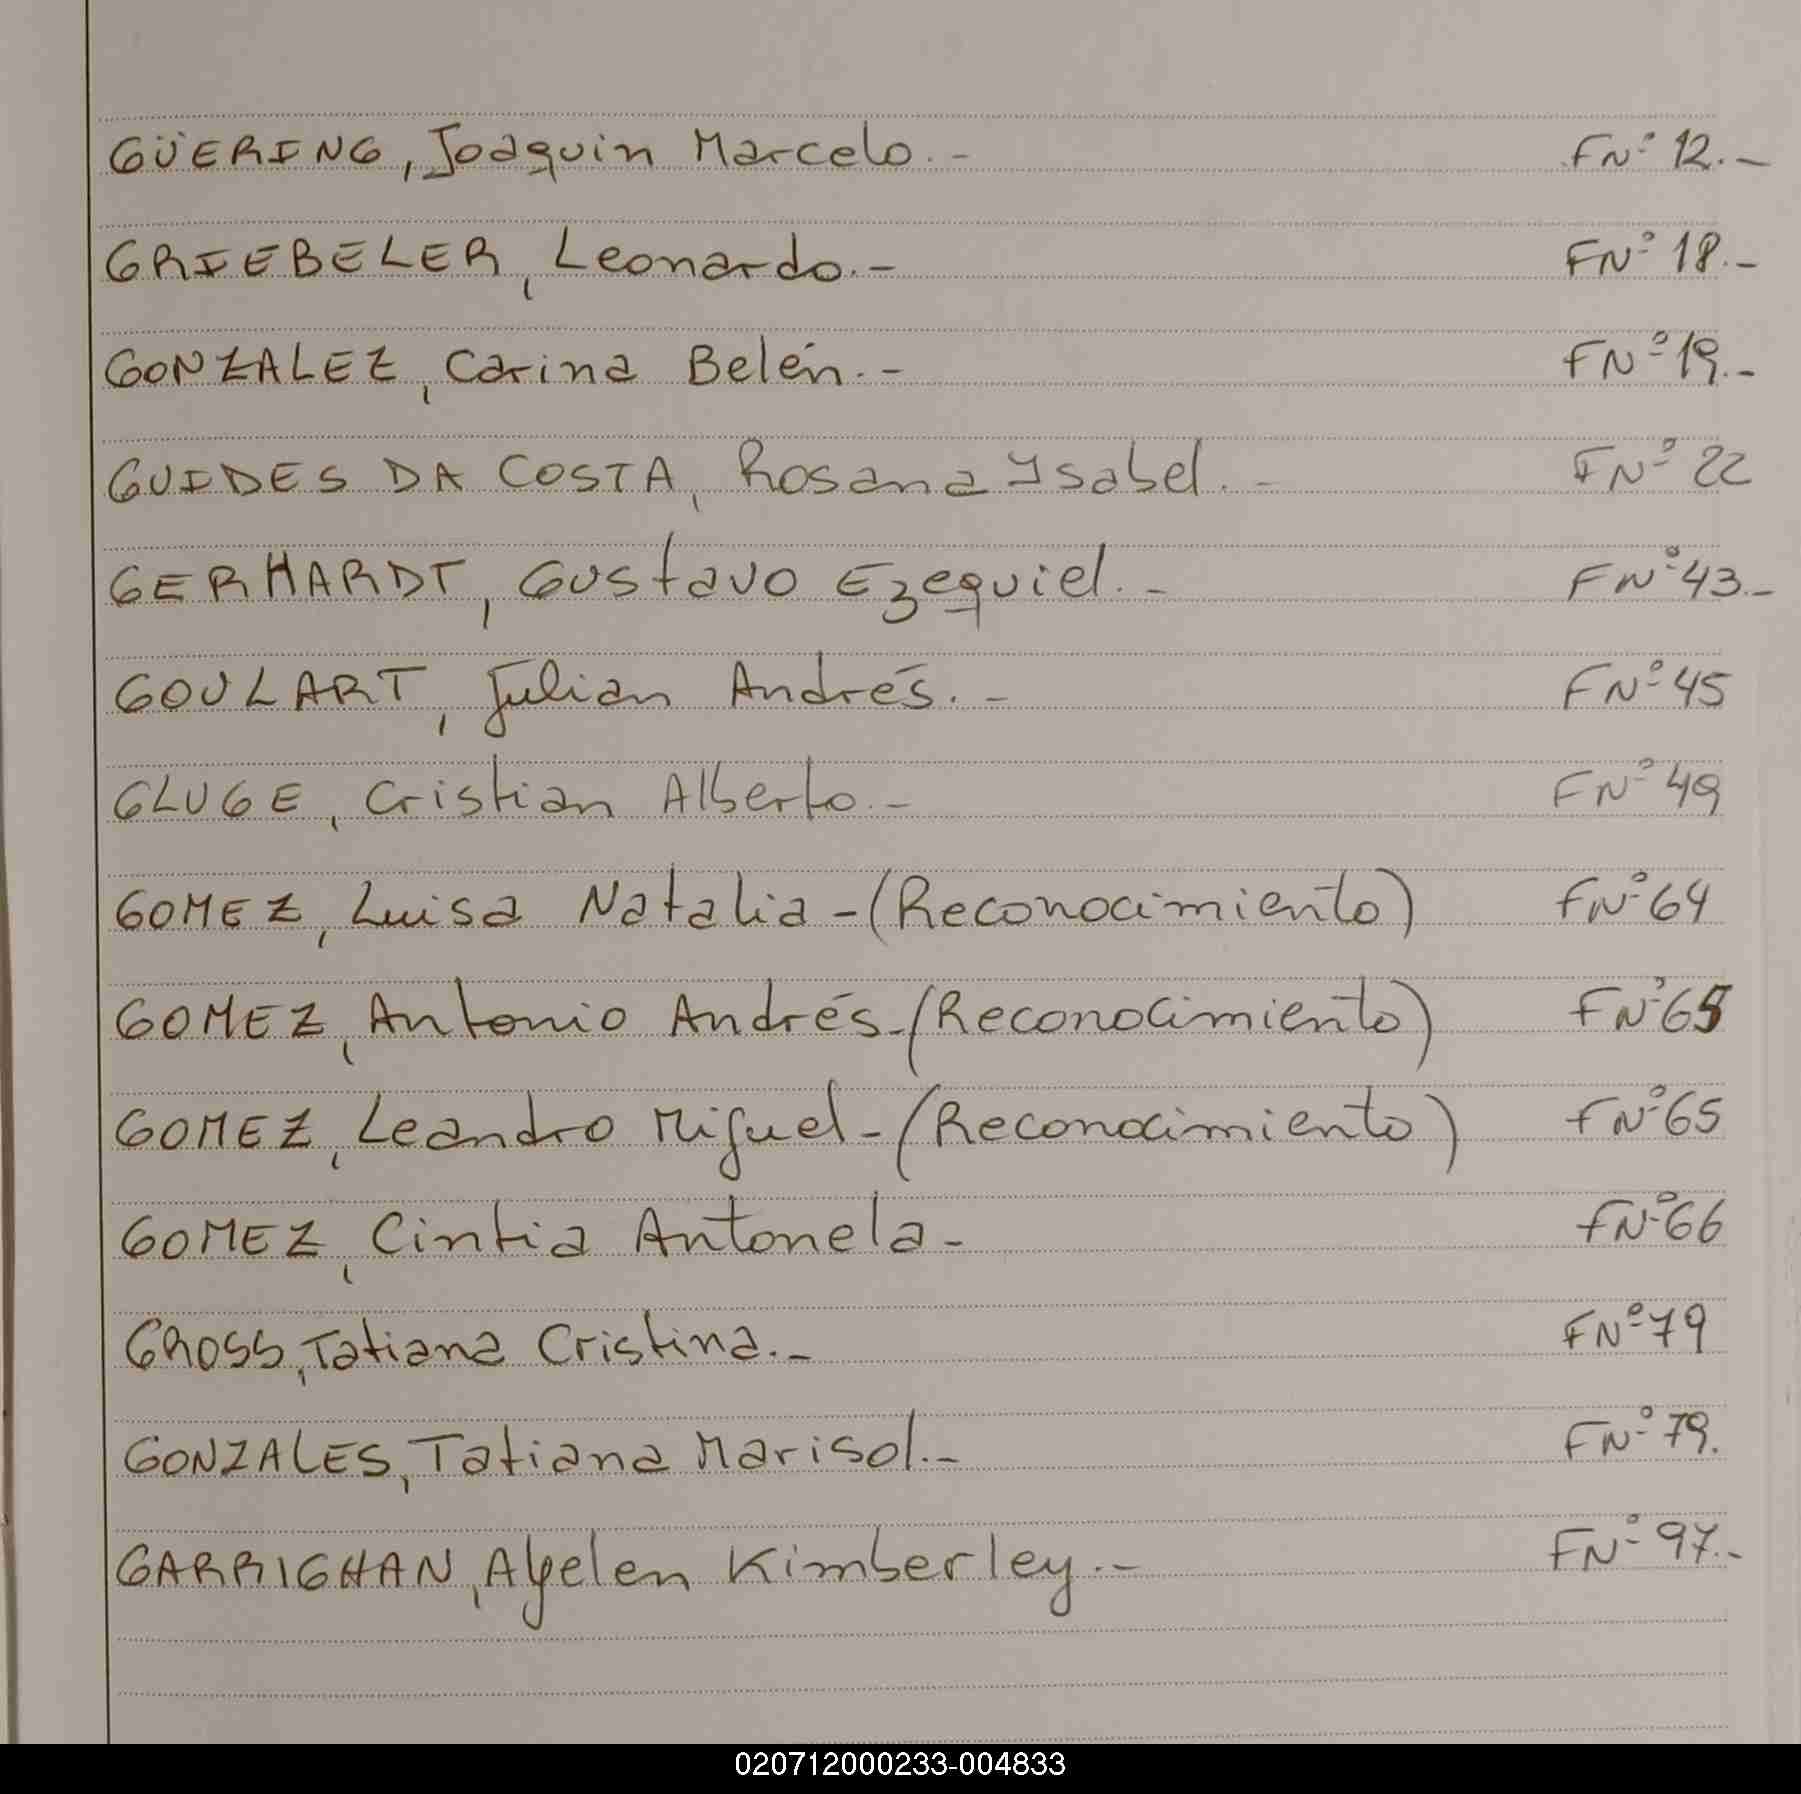 GÜERING, Joaquin Marcelo.- FNº 12.-
GRIEBELER, Leonardo.- FNº 18.-
GONZALEZ, Carina Belén.- FNº 19.-
GUIDES DA COSTA, Rosana Ysabel.- FNº 22
GERHARDT, Gustavo Ezequiel.- FNº 43.-
GOULART, Julian Andrés.- FNº 45
GLUGE, Cristian Alberto.- FNº 49
GOMEZ, Luisa Natalia-(Reconocimiento) FNº 64
GOMEZ, Antonio Andrés-(Reconocimiento) FNº 65
GOMEZ, Leandro Miguel-(Reconocimiento) FNº 65
GOMEZ, Cintia Antonela- FNº 66
GROSS, Tatiana Cristina.- FNº 79
GONZALES, Tatiana Marisol.- FNº 79.
GARRIGHAN, Ayelen Kimberley.- FNº 97.-
020712000233-004833